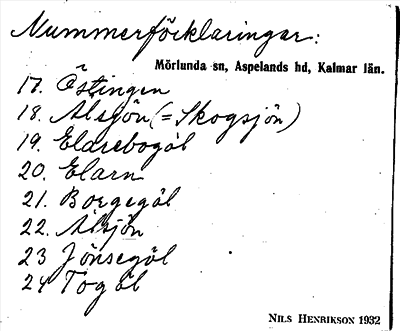 Nummerförklaringar:
Mörlunda sn, Aspelands hd, Kalmar län.
17. Östingen
18. Älsjön (= Skogsjön)
19. Elarebogöl
20. Elarn
21. Borgegöl
22. Älsjön
23 Jönsegöl
24 Togöl
NILS HENRIKSON 1932